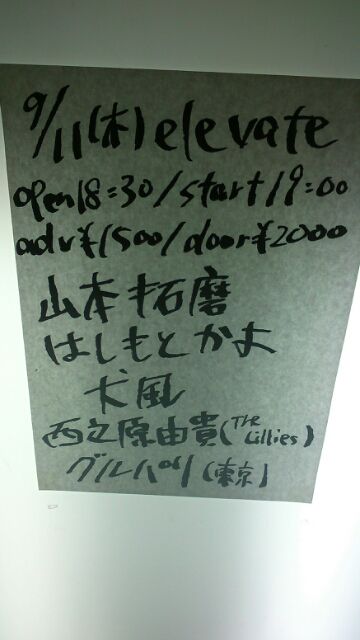 9/11(木) elevate
open18:30/start19:00
adv¥1500/door¥2000
山本拓磨
はしもとかよ
犬風
西之原由貴(The Lillies)
グルパリ(東京)